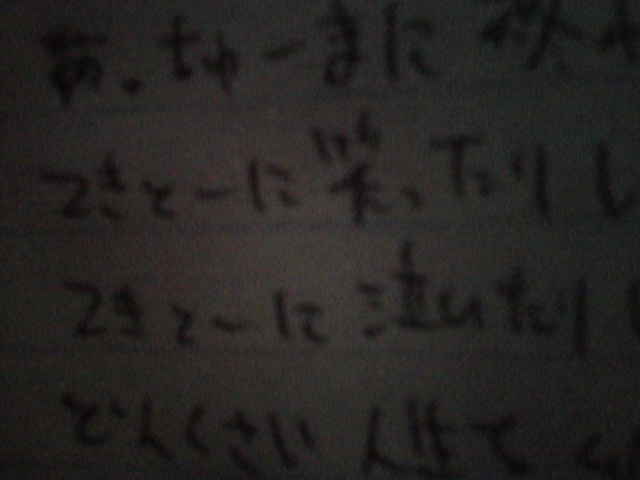 あっちゅーまに 終わ
てきとーに笑ったりし
てきとーに泣いたりし
どんくさい人生で